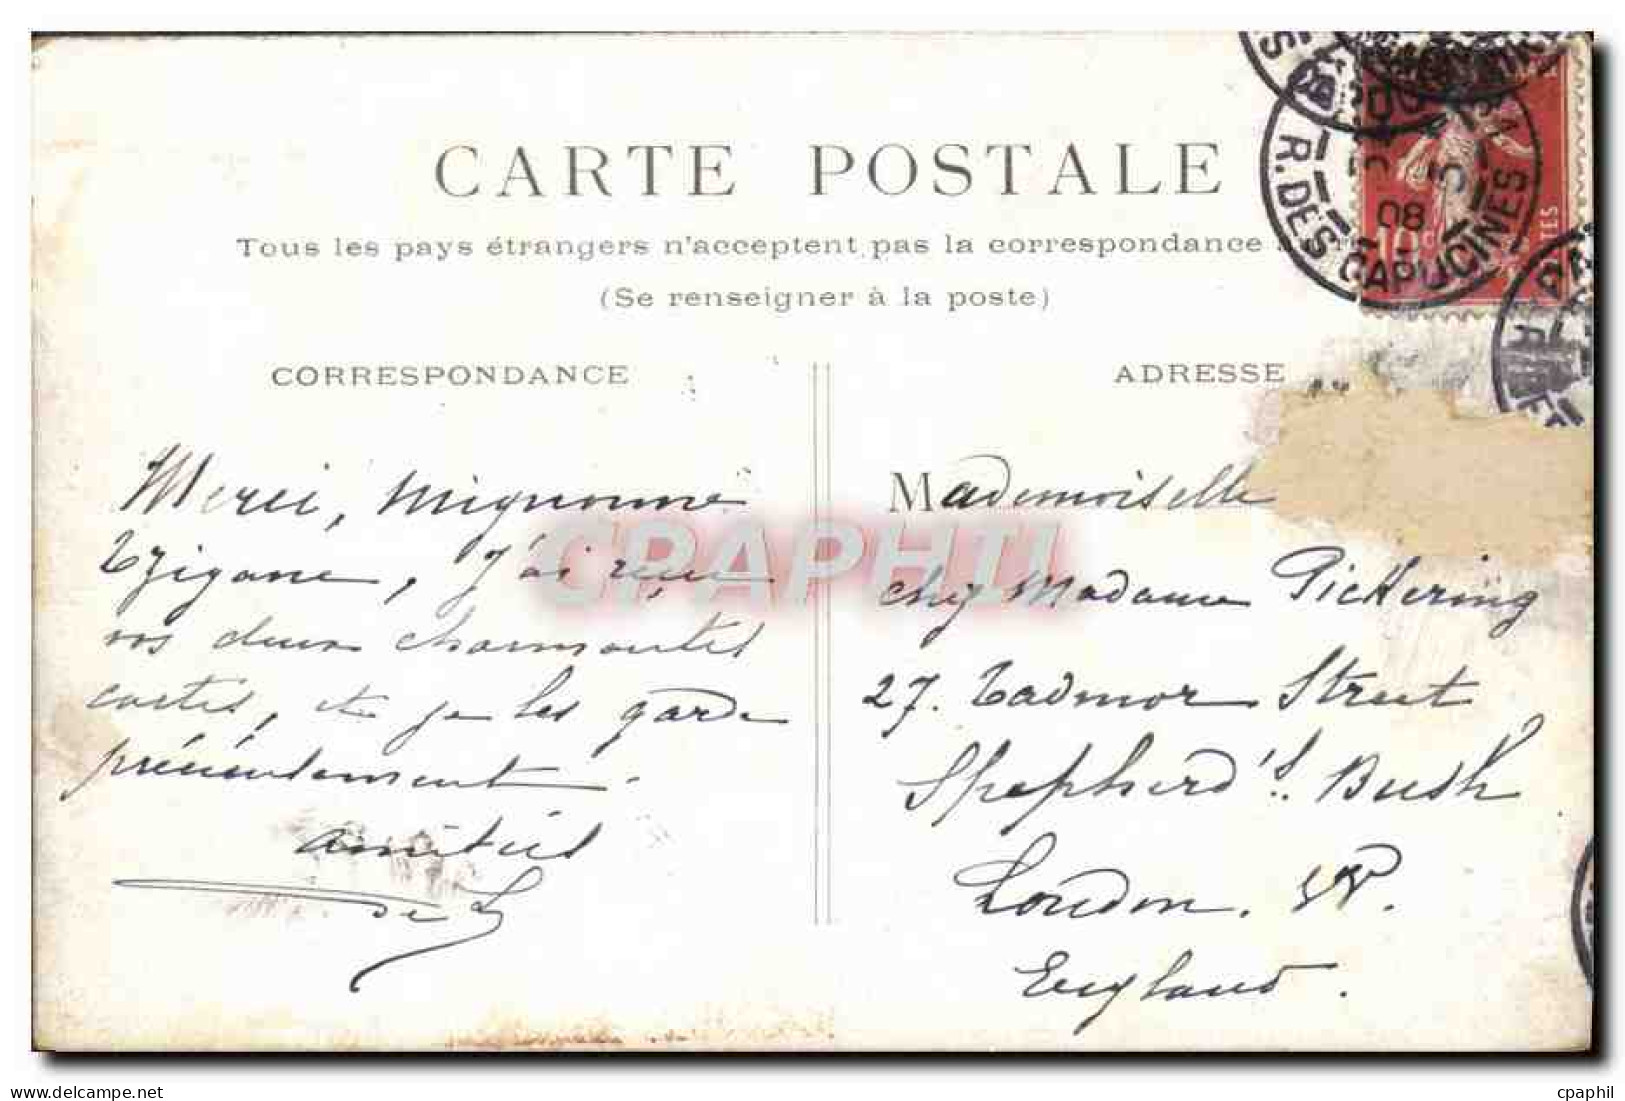 CARTE POSTALE
Tous les pays étrangers n'acceptent pas la correspondance
(Se renseigner à la poste)
CORRESPONDANCE
Merci, mignonne
Tzigane, j'ai reçu
vos deux charmantes
cartes, et je les garde
précieusement.
Amitiés
de L
ADRESSE
Mademoiselle
chez Madame Pickering
27. Tadmor Street
Shepherd's Bush
London. W.
England.
R. DES CAPUCINES
08
10c
CPAPHIL
cpaphil